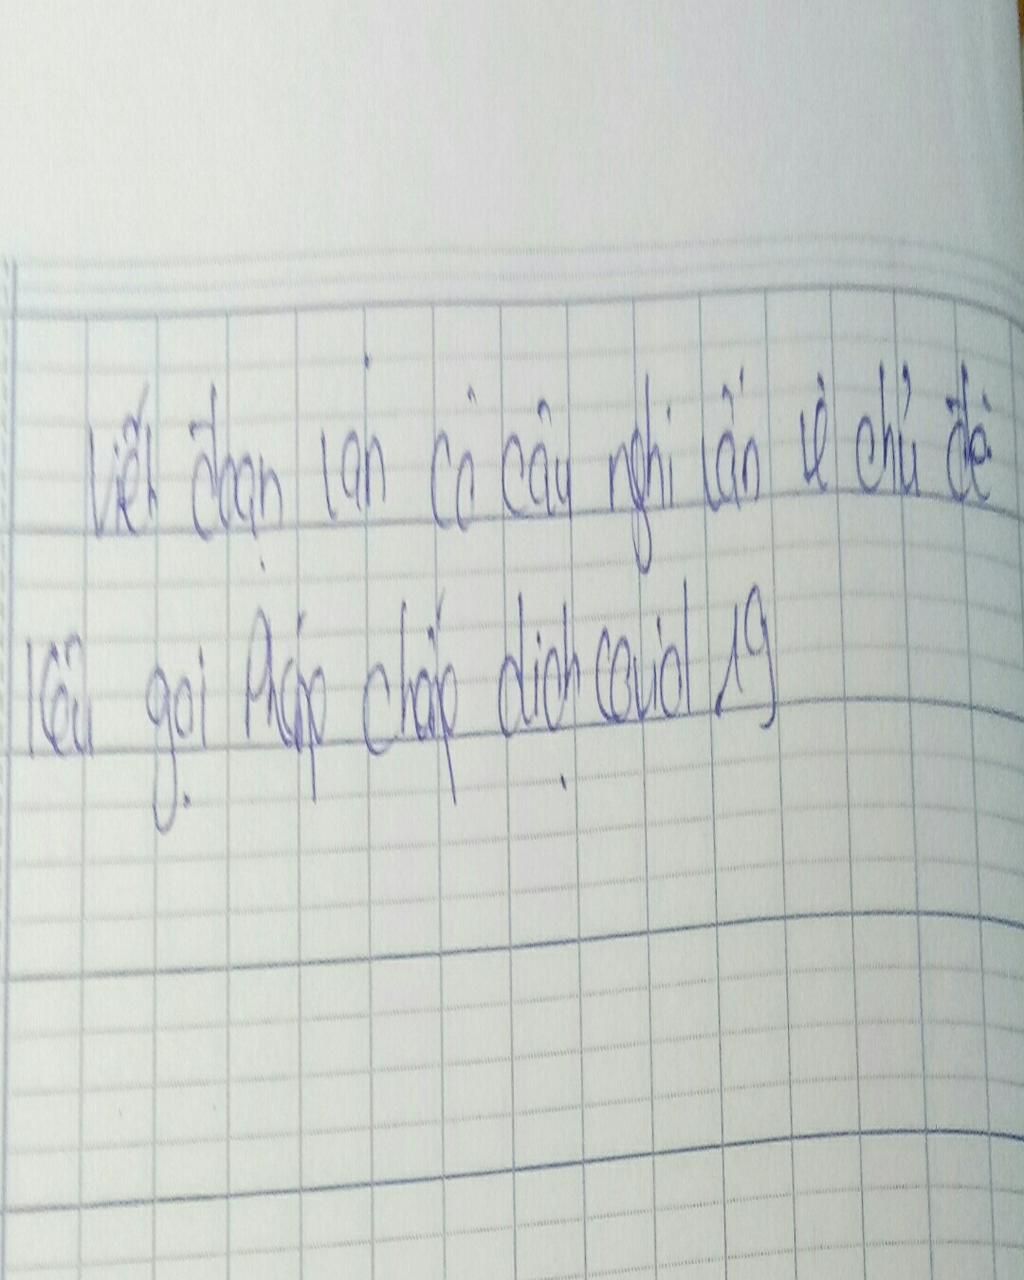 Viết đoạn văn có câu nghi vấn về chủ đề
kêu gọi Pháp chấp dịch covid 19